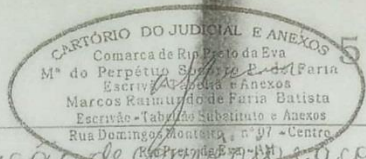 CARTÓRIO DO JUDICIAL E ANEXOS
5
Comarca de Rio Preto da Eva
Mª do Perpétuo Faria
Escrivã e Anexos
Marcos Raimundo de Faria Batista
Escrivão - Tabelião Substituto e Anexos
Rua Domingos Monteiro, nº 97 - Centro
Rio Preto da Eva - AM